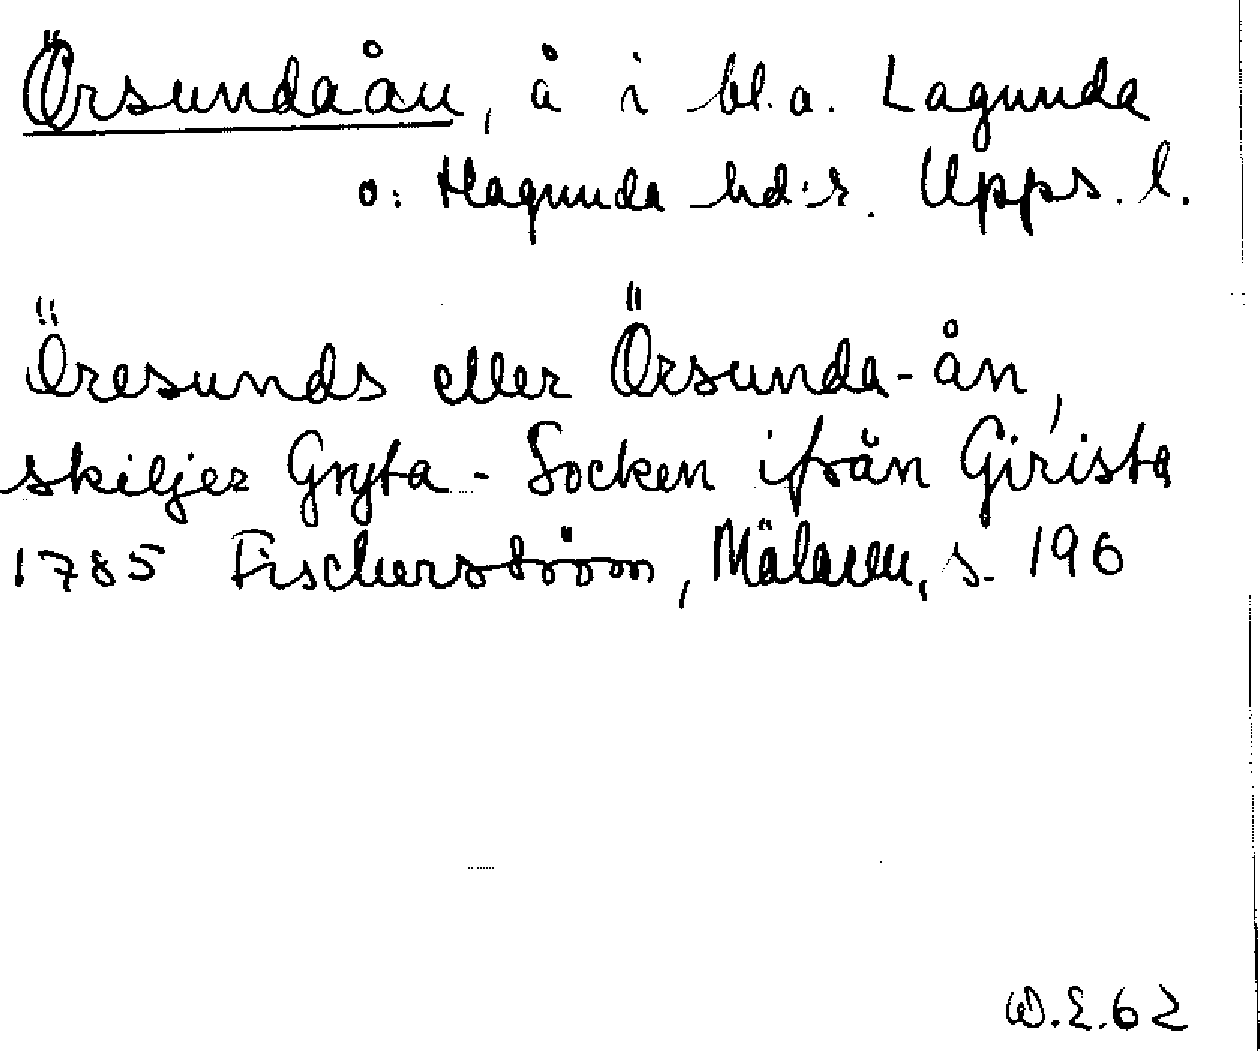 Örsundaån, å i bl.a. Lagunda
o: Hagunda hd:r. Upps. l.
Öresunds eller Örsunda-ån,
skiljer Gryta - Socken ifrån Girista
1785 Fischerström, Mälaren, s. 196
W.E.62